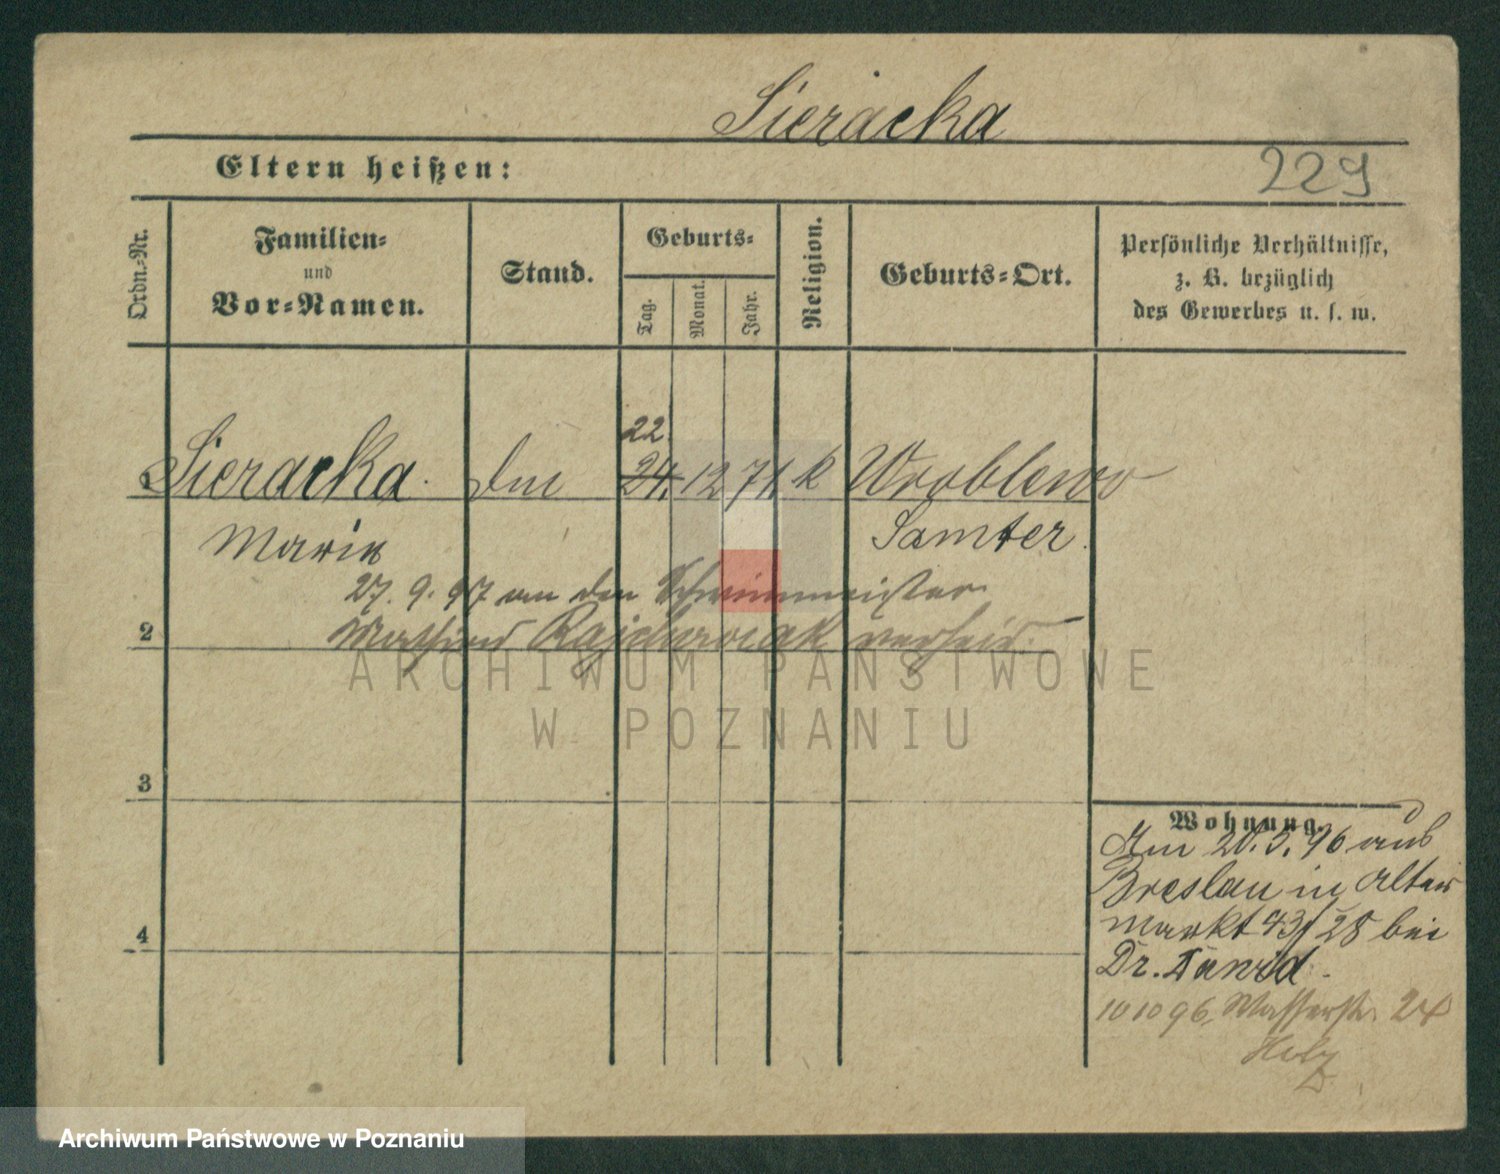 Sieracka
Eltern heißen:
229
Ordn.-Nr.
Familien-
und
Vor-Namen.
Stand.
Geburts-
Tag.
Monat.
Jahr.
Religion.
Geburts-Ort.
Persönliche Verhältnisse,
z. B. bezüglich
des Gewerbes u. s. w.
22.
Sieracka. 24. 12 71. k Wroblewo
Marie Samter.
27. 9. 97 an den
2
verheir.
ARCHIWUM PAŃSTWOWE
W POZNANIU
3
Wohnung.
Am 20. 3. 96 aus
Breslau in Alter
Markt 43/28 bei
4
Dr.
10 10 96, Wasserstr. 24
Archiwum Państwowe w Poznaniu